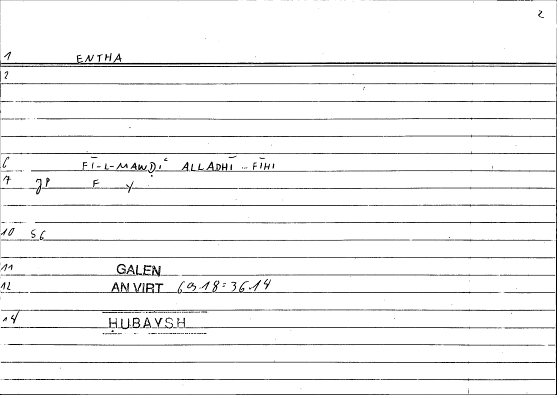 2
1 ENTHA
2
6 FĪ-L-MAWḌIʿ ALLADHĪ .. FĪHI
7 gP F Y
10 SG
11 GALEN
12 AN VIRT 69.18=36.14
14 ḤUBAYSH